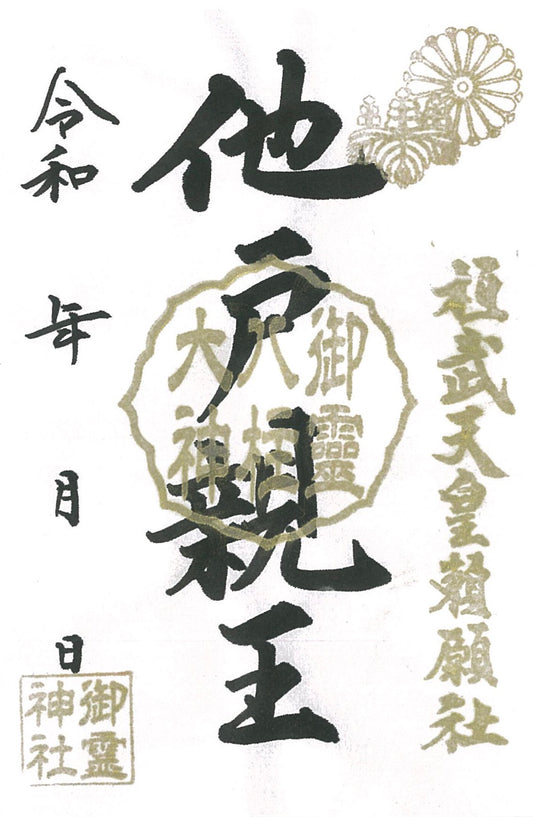 桓武天皇勅願社
他戸親王
御靈
八柱
大神
令和 年 月 日
御霊
神社